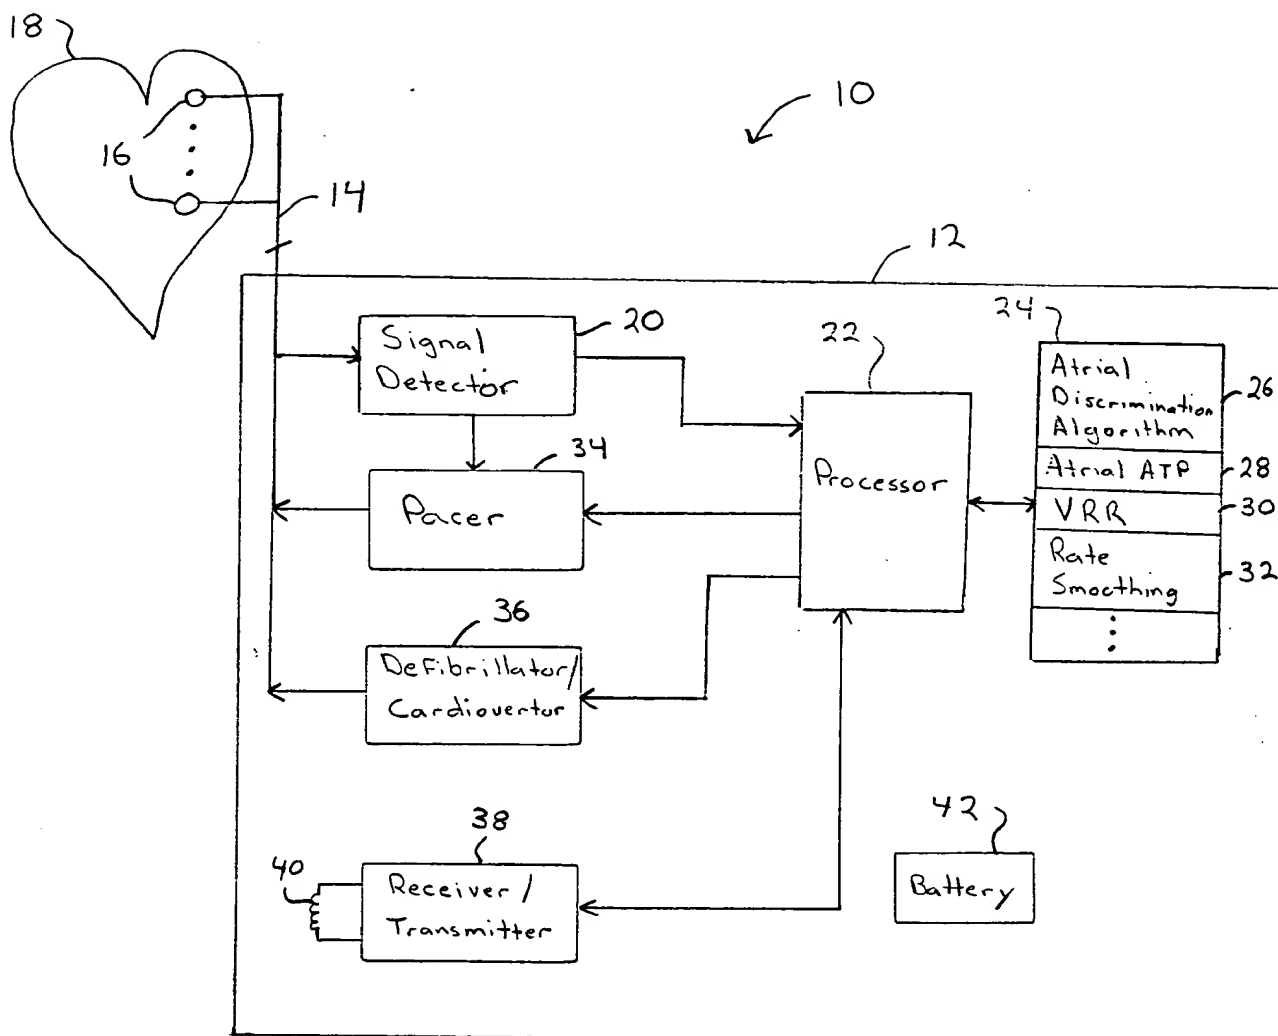 18
10
16
14
12
20
Signal
Detector
22
24
Atrial
Discrimination
Algorithm
26
Atrial ATP
28
VRR
30
Rate
Smoothing
32
34
Pacer
Processor
36
Defibrillator/
Cardiovertor
38
40
Receiver/
Transmitter
42
Battery